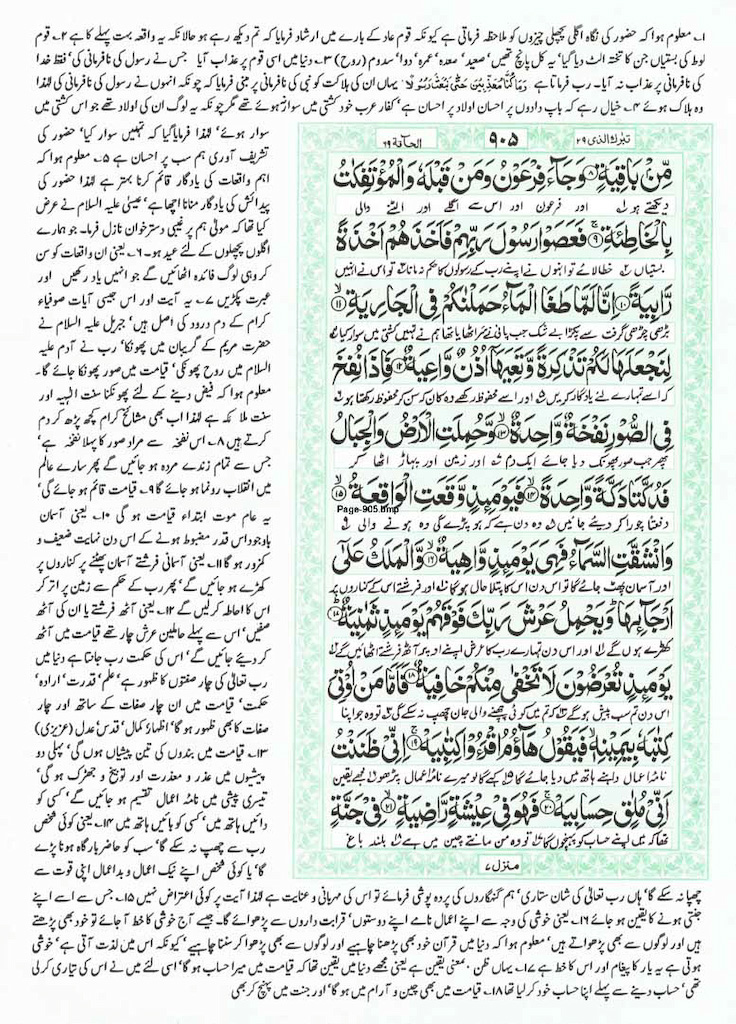 ۱۔ معلوم ہوا کہ حضور کی نگاہ اگلی پچھلی چیزوں کو ملاحظہ فرماتی ہے کیونکہ قوم عاد کے بارے میں ارشاد فرمایا کہ تم دیکھ رہے ہو حالانکہ یہ واقعہ بہت پہلے کا ہے ۲۔ قوم
لوط کی بستیاں جن کا تختہ الٹ دیا گیا' یہ کل پانچ تھیں' صعید' سعدہ' عمرہ' دوا' سدوم (روح) ۳۔ دنیا میں اسی قوم پر عذاب آیا جس نے رسول کی نافرمانی کی' فقط خدا
کی نافرمانی پر عذاب نہ آیا۔ رب فرماتا ہے وَمَا كُنَّا مُعَذِّبِيْنَ حَتّٰى نَبْعَثَ رَسُوْلًا یہاں ان کی ہلاکت کو نبی کی نافرمانی پر مبنی فرمایا کہ چونکہ انہوں نے رسول کی نافرمانی کی
وہ ہلاک ہوئے ۴۔ خیال رہے کہ باپ دادوں پر احسان اولاد پر احسان ہے' کفار عرب خود کشتی میں سوار نہ ہوئے تھے مگر چونکہ یہ لوگ ان کی اولاد تھے جو اس کشتی میں
سوار ہوئے' لہٰذا فرمایا گیا کہ تمہیں سوار کیا' حضور کی
تشریف آوری ہم سب پر احسان ہے ۵۔ معلوم ہوا کہ
اہم واقعات کی یادگار قائم کرنا بہتر ہے لہٰذا حضور کی
پیدائش کی یادگار منانا اچھا ہے' عیسیٰ علیہ السلام نے عرض
کیا تھا کہ مولیٰ ہم پر غیبی دسترخوان نازل فرما۔ جو ہمارے
اگلوں پچھلوں کے لئے عید ہو۔ ۶۔ یعنی ان واقعات کو سن
کر وہی لوگ فائدہ اٹھائیں گے جو انہیں یاد رکھیں اور
عبرت پکڑیں ۷۔ یہ آیت اور اس جیسی آیات صوفیاء
کرام کے دم درود کی اصل ہیں' جبریل علیہ السلام نے
حضرت مریم کے گریبان میں پھونکا' رب نے آدم علیہ
السلام میں روح پھونکی' قیامت میں صور پھونکا جائے گا۔
معلوم ہوا کہ فیض دینے کے لئے پھونکنا سنت الٰہیہ اور
سنت ملائکہ ہے لہٰذا اب بھی مشائخ کرام کچھ پڑھ کر دم
کرتے ہیں ۸۔ اس نفخہ سے مراد صور کا پہلا نفخہ ہے'
جس سے تمام زندے مردہ ہو جائیں گے پھر سارے عالم
میں انقلاب رونما ہو جائے گا ۹۔ قیامت قائم ہو جائے گی'
یہ عام موت ابتداء قیامت ہو گی ۱۰۔ یعنی آسمان
باوجود اس قدر مضبوط ہونے کے اس دن نہایت ضعیف و
کمزور ہو گا ۱۱۔ یعنی آسمانی فرشتے آسمان پھٹنے پر کناروں پر
کھڑے ہو جائیں گے' پھر رب کے حکم سے زمین پر اتر کر
اس کا احاطہ کر لیں گے ۱۲۔ یعنی آٹھ فرشتے یا ان کی آٹھ
صفیں' اس سے پہلے حاملین عرش چار تھے قیامت میں آٹھ
کر دیئے جائیں گے' اس کی حکمت رب جانتا ہے دنیا میں
رب تعالیٰ کی چار صفتوں کا ظہور ہے' علم' قدرت' ارادہ'
حکمت' قیامت میں ان چار صفات کے ساتھ اور چار
صفات کا بھی ظہور ہو گا' اظہار' کمال' قدس' عدل (عزیزی)
۱۳۔ قیامت میں بندوں کی تین پیشیاں ہوں گی' پہلی دو
پیشیوں میں عذر و معذرت اور توبیخ و جھڑک ہو گی'
تیسری پیشی میں نامہ اعمال تقسیم ہو جائیں گے' کسی کو
دائیں ہاتھ میں' کسی کو بائیں ہاتھ میں ۱۴۔ یعنی کوئی شخص
رب سے چھپ نہ سکے گا' سب کو حاضر بارگاہ ہونا پڑے
گا' یا کوئی شخص اپنے نیک اعمال و بد اعمال اپنی قوت سے
تبٰرک الذی ۲۹
۹۰۵
الحآقة ۶۹
مِّنْۢ بَاقِيَةٍ ۸ وَجَآءَ فِرْعَوْنُ وَمَنْ قَبْلَهٗ وَالْمُؤْتَفِكٰتُ
دیکھتے ہو اور فرعون اور اس سے اگلے اور الٹنے والی
بِالْخَاطِئَةِ ۹ فَعَصَوْا رَسُوْلَ رَبِّهِمْ فَاَخَذَهُمْ اَخْذَةً
بستیاں خطا لائے تو انہوں نے اپنے رب کے رسولوں کا حکم نہ مانا تو اس نے انہیں
رَّابِيَةً ۱۰ اِنَّا لَمَّا طَغَا الْمَآءُ حَمَلْنٰكُمْ فِى الْجَارِيَةِ ۱۱
بڑھی چڑھی گرفت سے پکڑا بے شک جب پانی نے سر اٹھایا تھا ہم نے تمہیں کشتی میں سوار کیا
لِنَجْعَلَهَا لَكُمْ تَذْكِرَةً وَّتَعِيَهَاۤ اُذُنٌ وَّاعِيَةٌ ۱۲ فَاِذَا نُفِخَ
کہ اسے تمہارے لئے یادگار کریں اور اسے محفوظ رکھے وہ کان کہ سن کر محفوظ رکھتا ہو
فِى الصُّوْرِ نَفْخَةٌ وَّاحِدَةٌ ۱۳ وَّحُمِلَتِ الْاَرْضُ وَالْجِبَالُ
پھر جب صور پھونک دیا جائے ایک دم اور زمین اور پہاڑ اٹھا کر
فَدُكَّتَا دَكَّةً وَّاحِدَةً ۱۴ فَيَوْمَئِذٍ وَّقَعَتِ الْوَاقِعَةُ ۱۵
Page-905.bmp
دفعتا چورا کر دیئے جائیں وہ دن ہے کہ ہو پڑے گی وہ ہونے والی
وَانْشَقَّتِ السَّمَآءُ فَهِىَ يَوْمَئِذٍ وَّاهِيَةٌ ۱۶ وَّالْمَلَكُ عَلٰۤى
اور آسمان پھٹ جائے گا تو اس دن اس کا پتلا حال ہو گا اور فرشتے اس کے کناروں پر
اَرْجَآئِهَا وَيَحْمِلُ عَرْشَ رَبِّكَ فَوْقَهُمْ يَوْمَئِذٍ ثَمٰنِيَةٌ ۱۷
کھڑے ہوں گے اور اس دن تمہارے رب کا عرش اپنے اوپر آٹھ فرشتے اٹھائیں گے
يَوْمَئِذٍ تُعْرَضُوْنَ لَا تَخْفٰى مِنْكُمْ خَافِيَةٌ ۱۸ فَاَمَّا مَنْ اُوْتِىَ
اس دن تم سب پیش ہو گے کہ تم میں کوئی چھپنے والی جان چھپ نہ سکے گی تو وہ جو اپنا
كِتٰبَهٗ بِيَمِيْنِهٖ فَيَقُوْلُ هَآؤُمُ اقْرَءُوْا كِتٰبِيَهْ ۱۹ اِنِّىْ ظَنَنْتُ
نامہ اعمال داہنے ہاتھ میں دیا جائے گا کہے گا لو میرے نامہ اعمال پڑھو مجھے یقین
اَنِّىْ مُلٰقٍ حِسَابِيَهْ ۲۰ فَهُوَ فِىْ عِيْشَةٍ رَّاضِيَةٍ ۲۱ فِىْ جَنَّةٍ
تھا کہ میں اپنے حساب کو پہنچوں گا تو وہ من مانتے چین میں ہے بلند باغ
منزل ۷
چھپا نہ سکے گا' ہاں رب تعالیٰ کی شان ستاری' ہم گنہگاروں کی پردہ پوشی فرمائے تو اس کی مہربانی و عنایت ہے لہٰذا آیت پر کوئی اعتراض نہیں ۱۵۔ جس سے اسے اپنے
جنتی ہونے کا یقین ہو جائے ۱۶۔ یعنی خوشی کی وجہ سے اپنے اعمال نامے اپنے دوستوں' قرابت داروں سے پڑھوائے گا۔ جیسے آج خوشی کا خط آ جائے تو خود بھی پڑھتے
ہیں اور لوگوں سے بھی پڑھواتے ہیں' معلوم ہوا کہ دنیا میں قرآن خود بھی پڑھنا چاہیے اور لوگوں سے بھی پڑھوا کر سننا چاہیے' کیونکہ اس میں لذت آتی ہے' خوشی
ہوتی ہے یہ یار کا پیغام اور اس کا خط ہے ۱۷۔ یہاں ظن بمعنی یقین ہے یعنی مجھے دنیا میں یقین تھا کہ قیامت میں میرا حساب ہو گا' اسی لئے میں نے اس کی تیاری کر لی
تھی' حساب دینے سے پہلے اپنا حساب خود کر لیا تھا ۱۸۔ قیامت میں بھی چین و آرام میں ہو گا' اور جنت میں پہنچ کر بھی